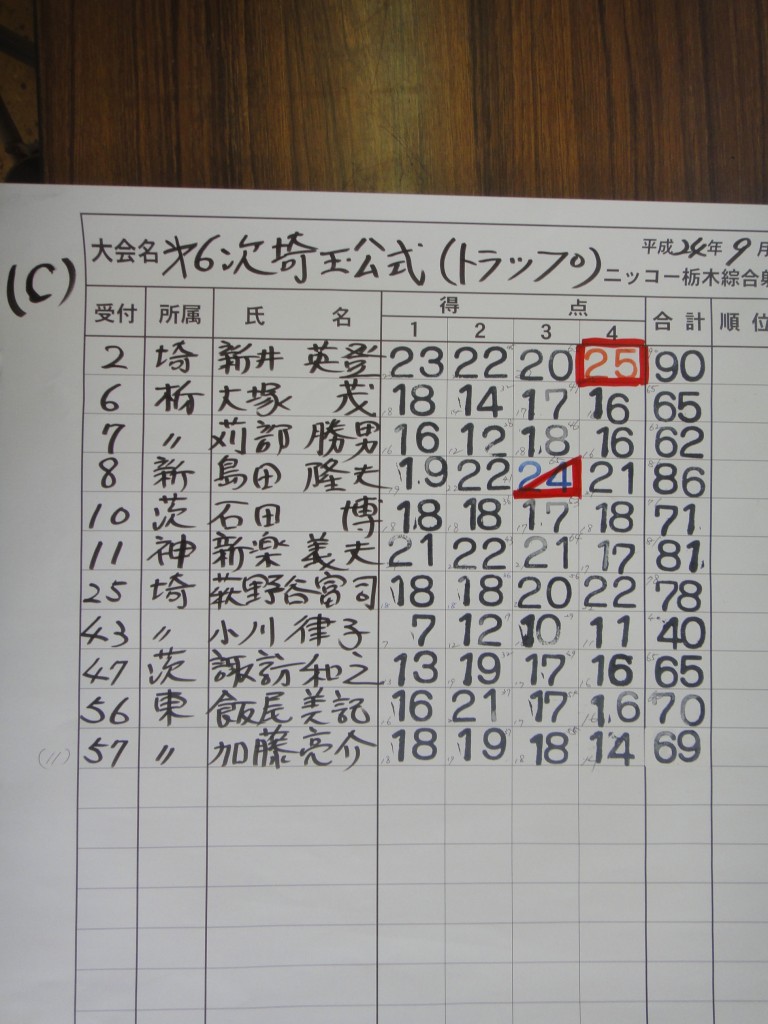 (C)
大会名 才6次埼玉公式(トラップ) 平成24年9月
ニッコー栃木綜合射
受付 所属 氏 名 得 点 合計 順位
1 2 3 4
2 埼 新井 英登 23 22 20 25 90
6 栃 大塚 茂 18 14 17 16 65
7 〃 苅部 勝男 16 12 18 16 62
8 新 島田 隆夫 19 22 24 21 86
10 茨 石田 博 18 18 17 18 71
11 神 新楽 義夫 21 22 21 17 81
25 埼 荻野谷富司 18 18 20 22 78
43 〃 小川 律子 7 12 10 11 40
47 茨 諏訪和之 13 19 17 16 65
56 東 飯尾美記 16 21 17 16 70
(11) 57 〃 加藤亮介 18 19 18 14 69